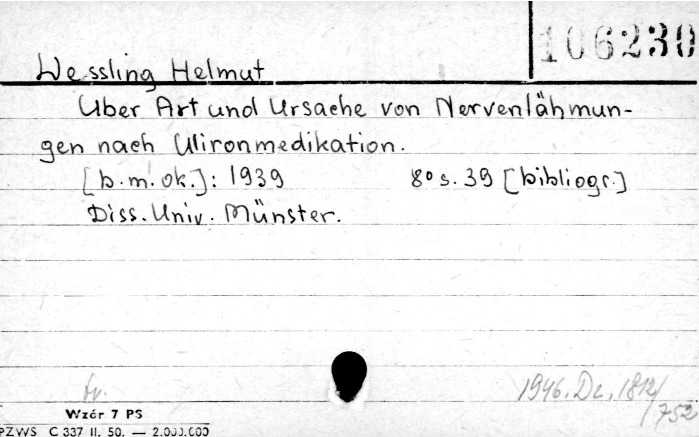 106230
Wessling Helmut
Über Art und Ursache von Nervenlähmun-
gen nach Ulironmedikation.
[b.m.ok.]: 1939 8° s. 39 [bibliogr.]
Diss. Univ. Münster.
1946. Dz. 1812/
752
Wzór 7 PS
PZWS C 337 II. 50. — 2.000.000